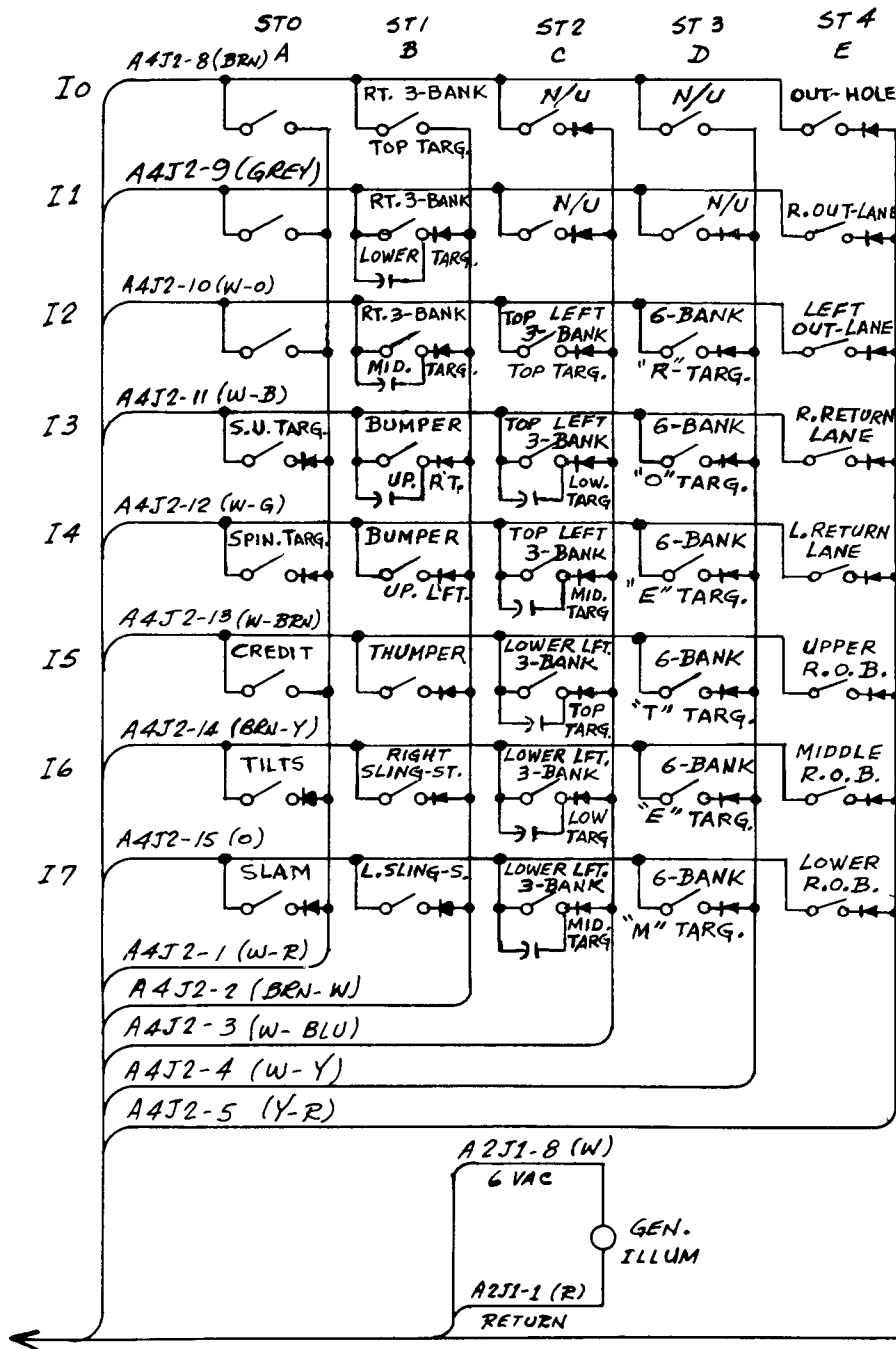 ST0 ST1 ST2 ST3 ST4
A B C D E
A4J2-8 (BRN)
I0
RT. 3-BANK
TOP TARG.
N/U
N/U
OUT-HOLE
A4J2-9 (GREY)
I1
RT. 3-BANK
LOWER TARG.
N/U
N/U
R. OUT-LANE
A4J2-10 (W-O)
I2
RT. 3-BANK
MID. TARG.
TOP LEFT
3-BANK
TOP TARG.
6-BANK
"R" TARG.
LEFT
OUT-LANE
A4J2-11 (W-B)
I3
S.U. TARG.
BUMPER
UP. R'T.
TOP LEFT
3-BANK
LOW.
TARG
6-BANK
"O" TARG.
R. RETURN
LANE
A4J2-12 (W-G)
I4
SPIN. TARG.
BUMPER
UP. L'FT.
TOP LEFT
3-BANK
MID.
TARG
6-BANK
"E" TARG.
L. RETURN
LANE
A4J2-13 (W-BRN)
I5
CREDIT
THUMPER
LOWER LFT.
3-BANK
TOP
TARG.
6-BANK
"T" TARG.
UPPER
R.O.B.
A4J2-14 (BRN-Y)
I6
TILTS
RIGHT
SLING-ST.
LOWER LFT.
3-BANK
LOW
TARG
6-BANK
"E" TARG.
MIDDLE
R.O.B.
A4J2-15 (O)
I7
SLAM
L. SLING-S.
LOWER LFT.
3-BANK
MID.
TARG
6-BANK
"M" TARG.
LOWER
R.O.B.
A4J2-1 (W-R)
A4J2-2 (BRN-W)
A4J2-3 (W-BLU)
A4J2-4 (W-Y)
A4J2-5 (Y-R)
A2J1-8 (W)
6 VAC
GEN.
ILLUM
A2J1-1 (R)
RETURN